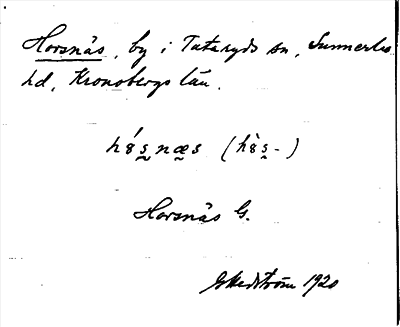 Horsnäs, by i Tutaryds sn, Sunnerbo
hd, Kronobergs län.
hó̤s̰næ̰s (hò̤s̰-)
Horsnäs G.
Ekedström 1920